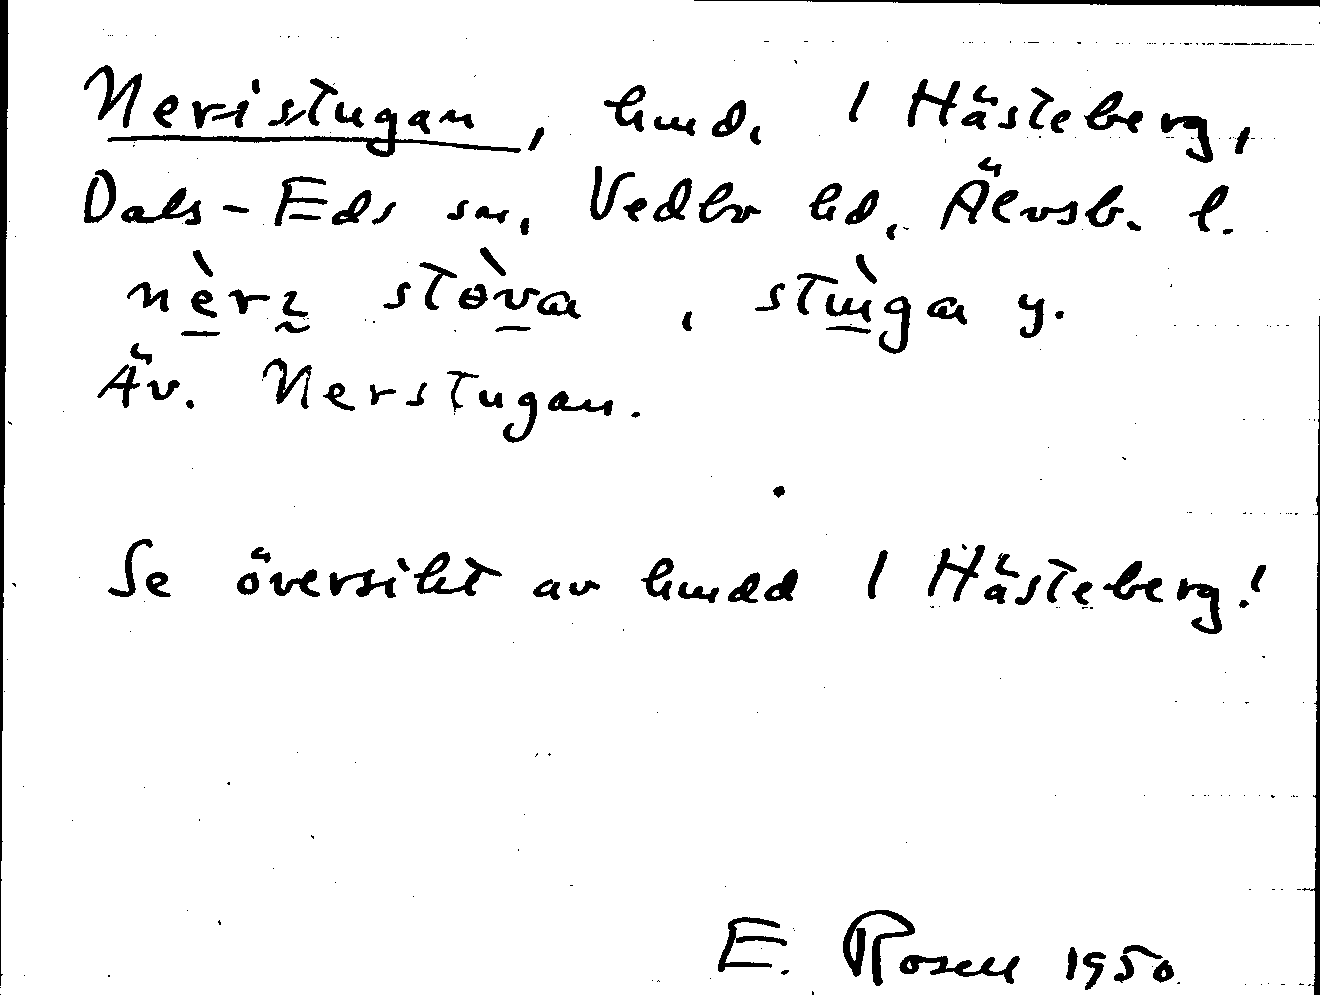 Neristugan, hmd, 1 Hästeberg,
Dals-Eds sn, Vedbo hd, Älvsb. l.
nèrɩ stòva, stùga y.
Äv. Nerstugan.
Se översikt av hmdd 1 Hästeberg!
E. Rosell 1950